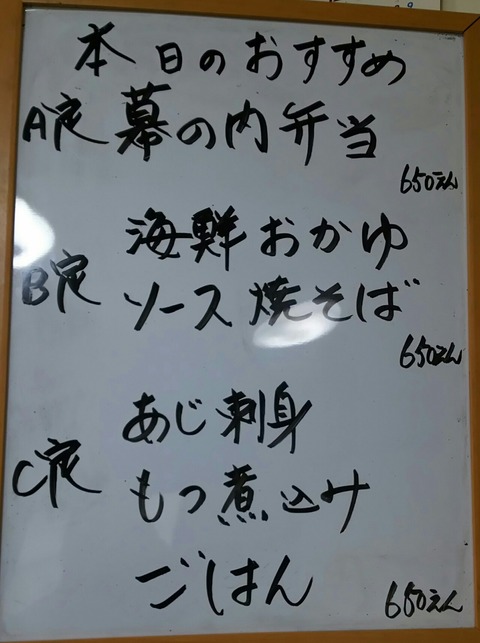 本日のおすすめ
A定 幕の内弁当
650えん
海鮮おかゆ
B定 ソース焼そば
650えん
あじ刺身
C定 もつ煮込み
ごはん 650えん